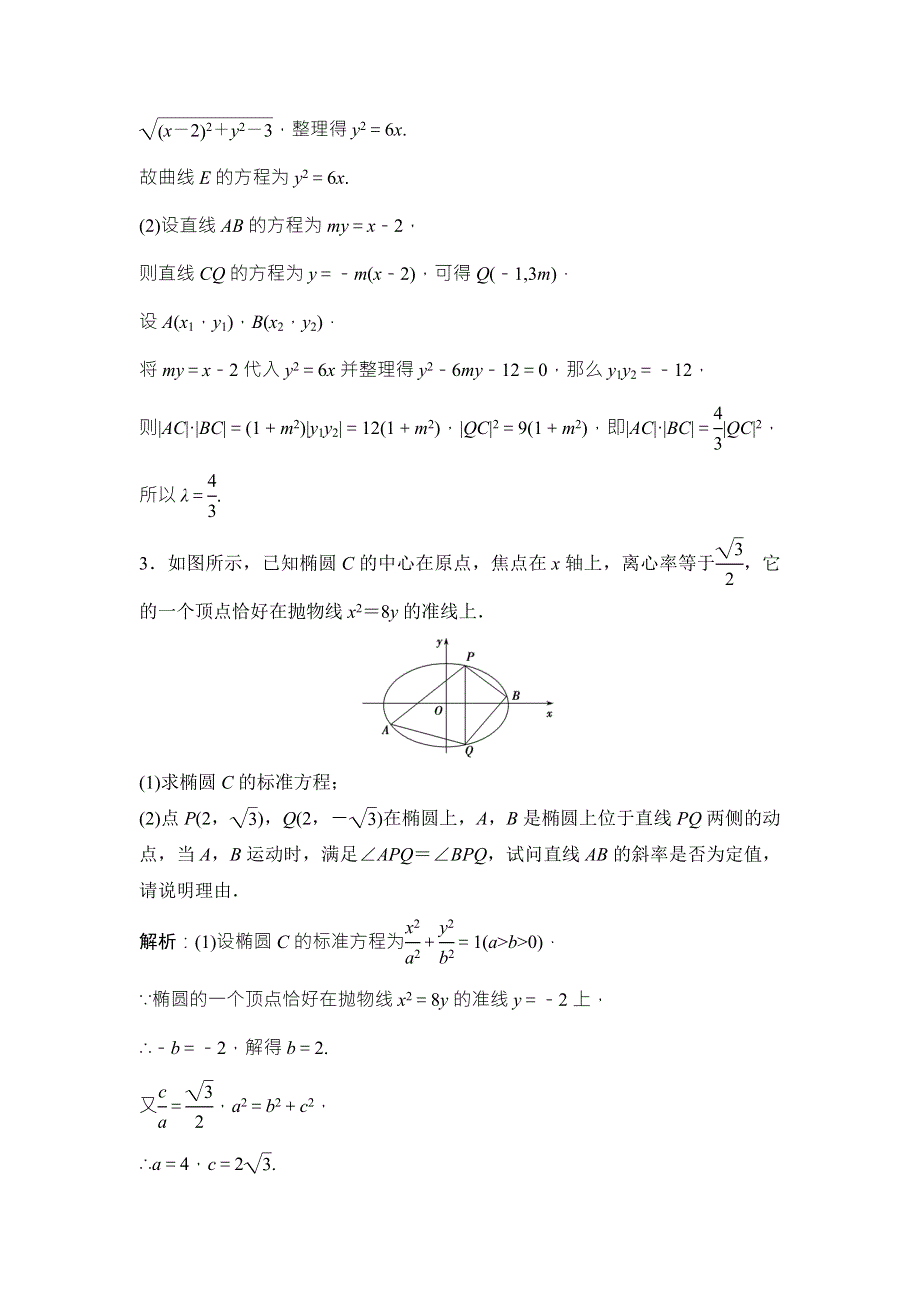 √((x－2)²＋y²－3)，整理得 y²＝6x.
故曲线 E 的方程为 y²＝6x.
(2)设直线 AB 的方程为 my＝x－2，
则直线 CQ 的方程为 y＝－m(x－2)，可得 Q(－1,3m)．
设 A(x₁，y₁)，B(x₂，y₂)．
将 my＝x－2 代入 y²＝6x 并整理得 y²－6my－12＝0，那么 y₁y₂＝－12，
则|AC|·|BC|＝(1＋m²)|y₁y₂|＝12(1＋m²)，|QC|²＝9(1＋m²)，即|AC|·|BC|＝4/3|QC|²，
所以 λ＝4/3.
3．如图所示，已知椭圆 C 的中心在原点，焦点在 x 轴上，离心率等于√3/2，它
的一个顶点恰好在抛物线 x²＝8y 的准线上．
y
P
B
O
x
A
Q
(1)求椭圆 C 的标准方程；
(2)点 P(2，√3)，Q(2，－√3)在椭圆上，A，B 是椭圆上位于直线 PQ 两侧的动
点，当 A，B 运动时，满足∠APQ＝∠BPQ，试问直线 AB 的斜率是否为定值，
请说明理由．
解析：(1)设椭圆 C 的标准方程为x²/a²＋y²/b²＝1(a>b>0)．
∵椭圆的一个顶点恰好在抛物线 x²＝8y 的准线 y＝－2 上，
∴－b＝－2，解得 b＝2.
又c/a＝√3/2，a²＝b²＋c²，
∴a＝4，c＝2√3.